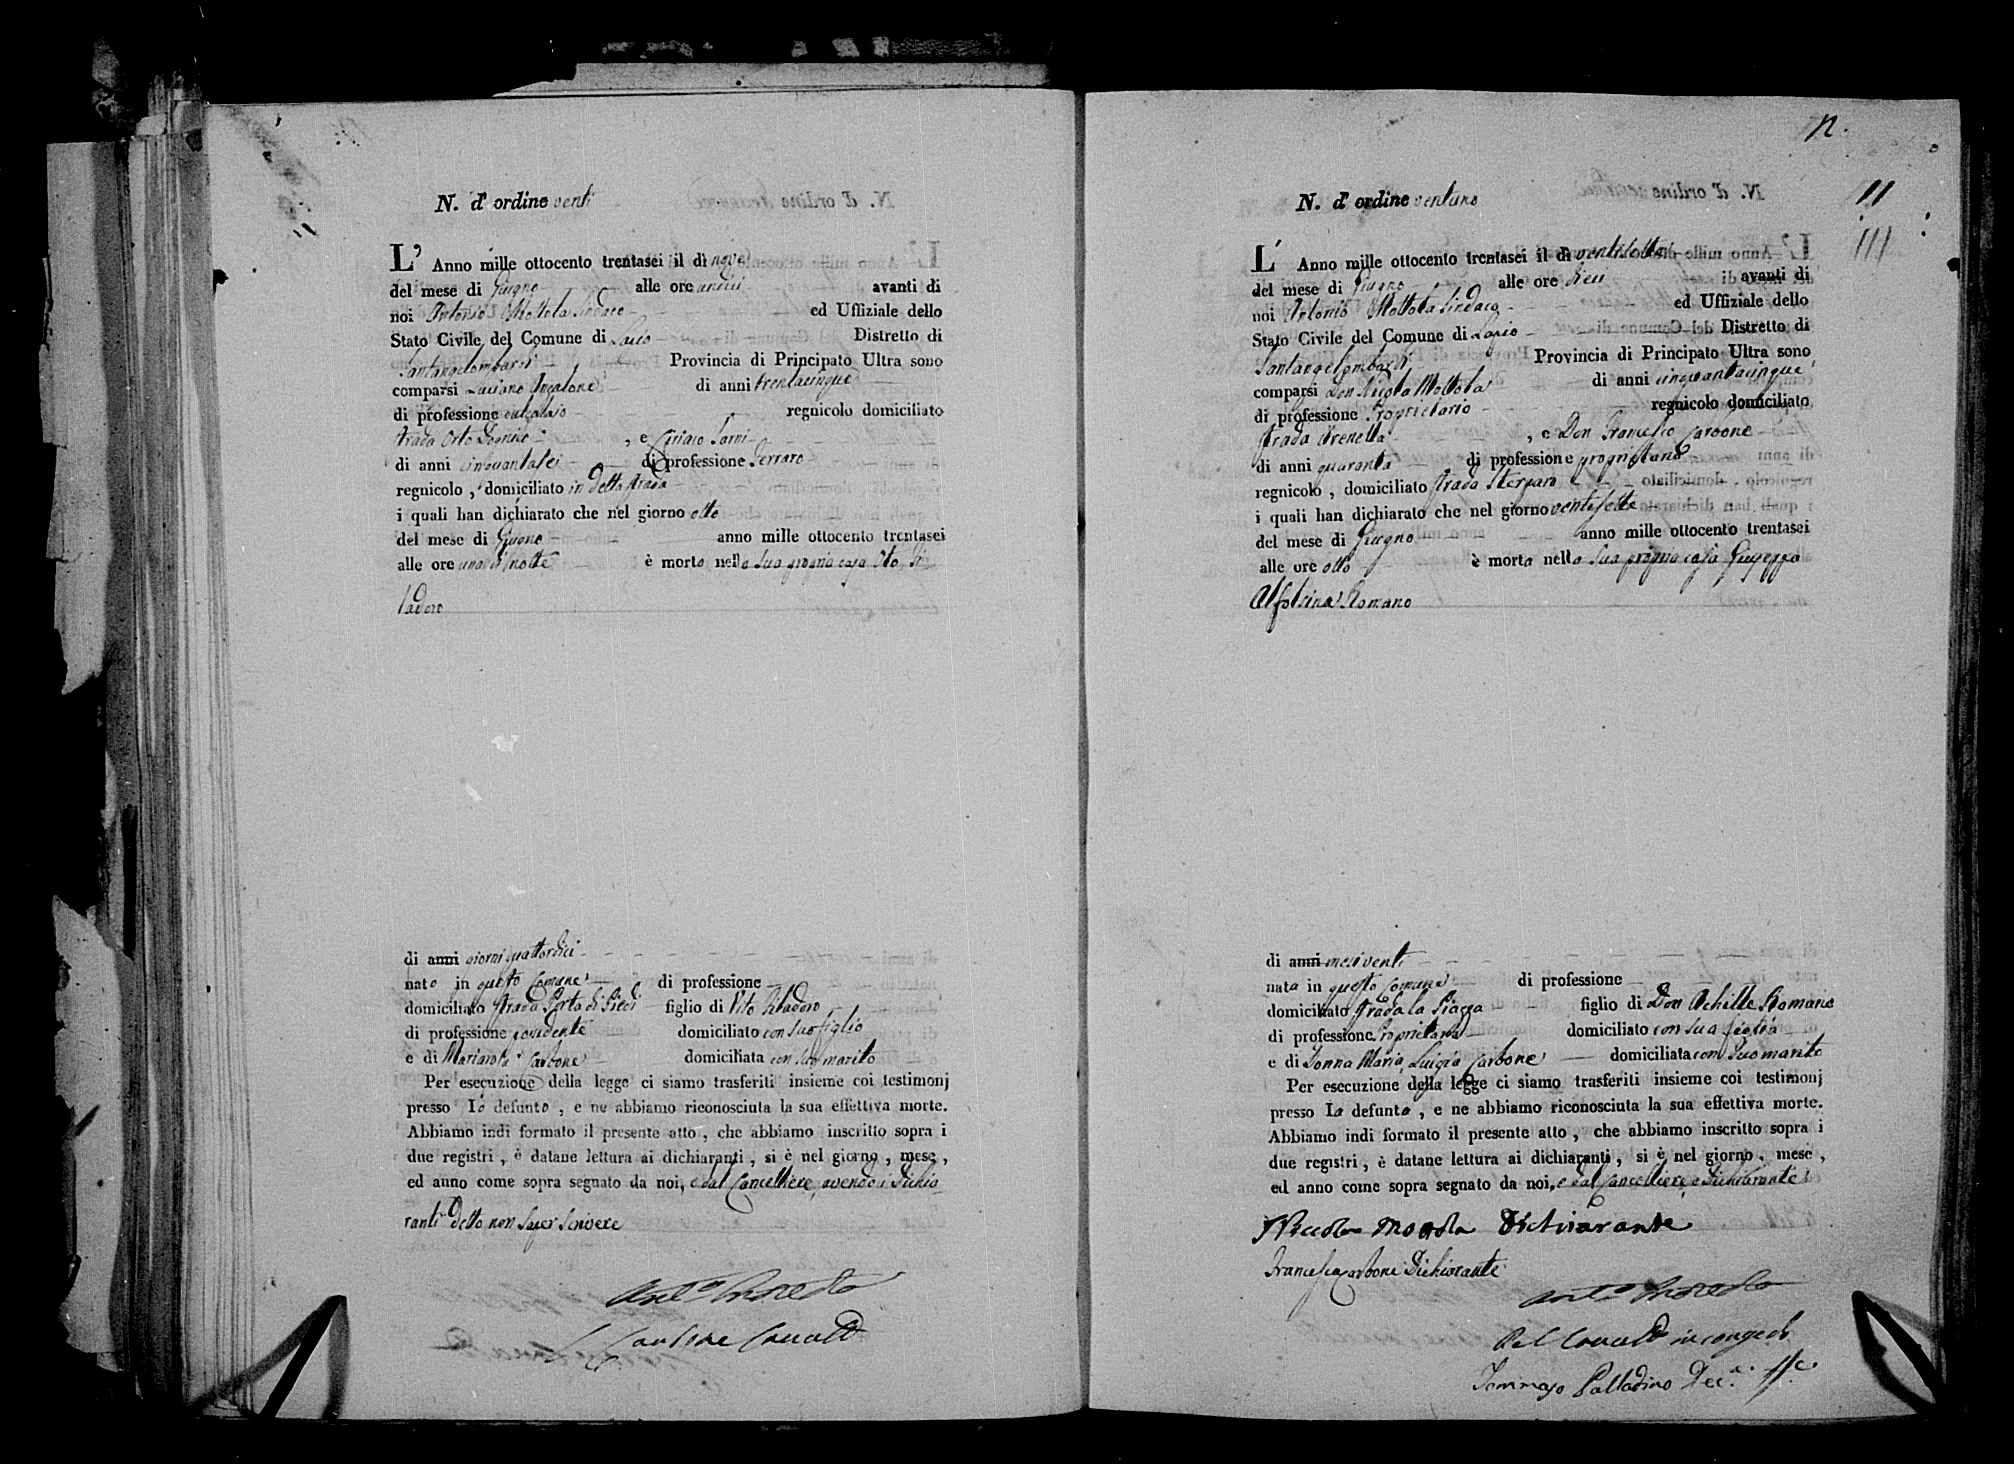 N. d' ordine venti
L' Anno mille ottocento trentasei il di nove
del mese di Giugno alle ore undici avanti di
noi Antonio Mottola Sindaco ed Uffiziale dello
Stato Civile del Comune di Distretto di
Santangelombardi Provincia di Principato Ultra sono
comparsi Luciano di anni trentacinque
di professione regnicolo domiciliato
strada Orto , e Ciriaco
di anni cinquantasei di professione Ferraro
regnicolo , domiciliato in detta strada
i quali han dichiarato che nel giorno otto
del mese di Giugno anno mille ottocento trentasei
alle ore una di notte è morto nella sua propria casa Vito Fi
ladoro
di anni giorni quattordici
nato in questo Comune di professione
domiciliato strada Porta di Piedi figlio di Vito Filadoro
di professione domiciliato con suo figlio
e di Mariarosa Carbone domiciliata con suo marito
Per esecuzione della legge ci siamo trasferiti insieme coi testimonj
presso lo defunto , e ne abbiamo riconosciuta la sua effettiva morte.
Abbiamo indi formato il presente atto , che abbiamo inscritto sopra i
due registri , è datane lettura ai dichiaranti , si è nel giorno , mese ,
ed anno come sopra segnato da noi, e dal Cancelliere, avendo i dichia
ranti detto non saper scrivere
Ant.o Mottola
Carbone
12.
11
111
N. d' ordine ventuno
L' Anno mille ottocento trentasei il di ventisette
del mese di Giugno alle ore dieci avanti di
noi Antonio Mottola Sindaco ed Uffiziale dello
Stato Civile del Comune di Distretto di
Santangelombardi Provincia di Principato Ultra sono
comparsi Don Nicola Mottola di anni cinquantacinque
di professione Proprietario regnicolo domiciliato
strada , e Don Francesco Carbone
di anni quaranta di professione proprietario
regnicolo , domiciliato strada
i quali han dichiarato che nel giorno ventisette
del mese di Giugno anno mille ottocento trentasei
alle ore otto è morta nella sua propria casa Giuseppa
Alfonsina Romano
di anni mesi venti
nata in questo Comune di professione
domiciliato strada la Piazza figlio di Don Achille Romano
di professione Proprietario domiciliato con sua figlia
e di Donna Maria Luigia Carbone domiciliata con suo marito
Per esecuzione della legge ci siamo trasferiti insieme coi testimonj
presso la defunta , e ne abbiamo riconosciuta la sua effettiva morte.
Abbiamo indi formato il presente atto , che abbiamo inscritto sopra i
due registri , è datane lettura ai dichiaranti , si è nel giorno , mese ,
ed anno come sopra segnato da noi, e dal Cancelliere, e dichiaranti
Niccola Mottola Dichiarante
Francesco Carbone Dichiarante
Ant.o Mottola
Pel in congedo
Tommaso Palladino